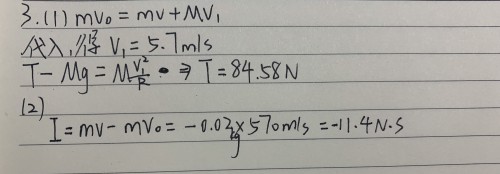 3.(1) mv₀ = mv + MV₁
代入得 V₁ = 5.7m/s
T - Mg = M V₁²/R ⇒ T = 84.58N
(2)
I = mv - mv₀ = -0.02g × 570m/s = -11.4N·s